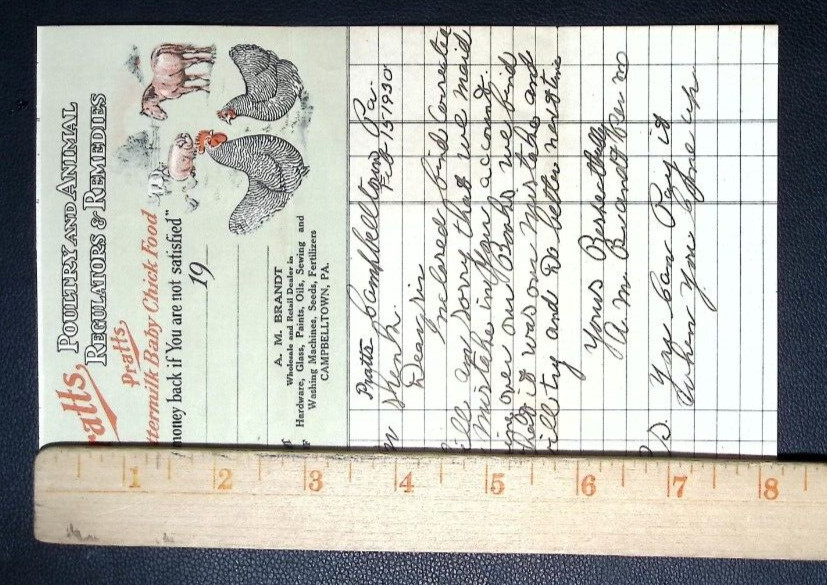 ratts,
POULTRY AND ANIMAL
REGULATORS & REMEDIES
Pratts,
ttermilk Baby Chick Food
money back if You are not satisfied"
19
A. M. BRANDT
Wholesale and Retail Dealer in
Hardware, Glass, Paints, Oils, Sewing and
Washing Machines, Seeds, Fertilizers
CAMPBELLTOWN, PA.
Pratts Campbelltown Pa.
Feb 15 1930
Shenk.
Dear Sir
Inclosed find corrected
ill am sorry that we maid
mistake in your account.
ing over our Books we find
that it was our mistake and
will try and do better next time
Yours Respectfully
A. M. Brandt Per
S. You can Pay it
when you Come up
1 2 3 4 5 6 7 8